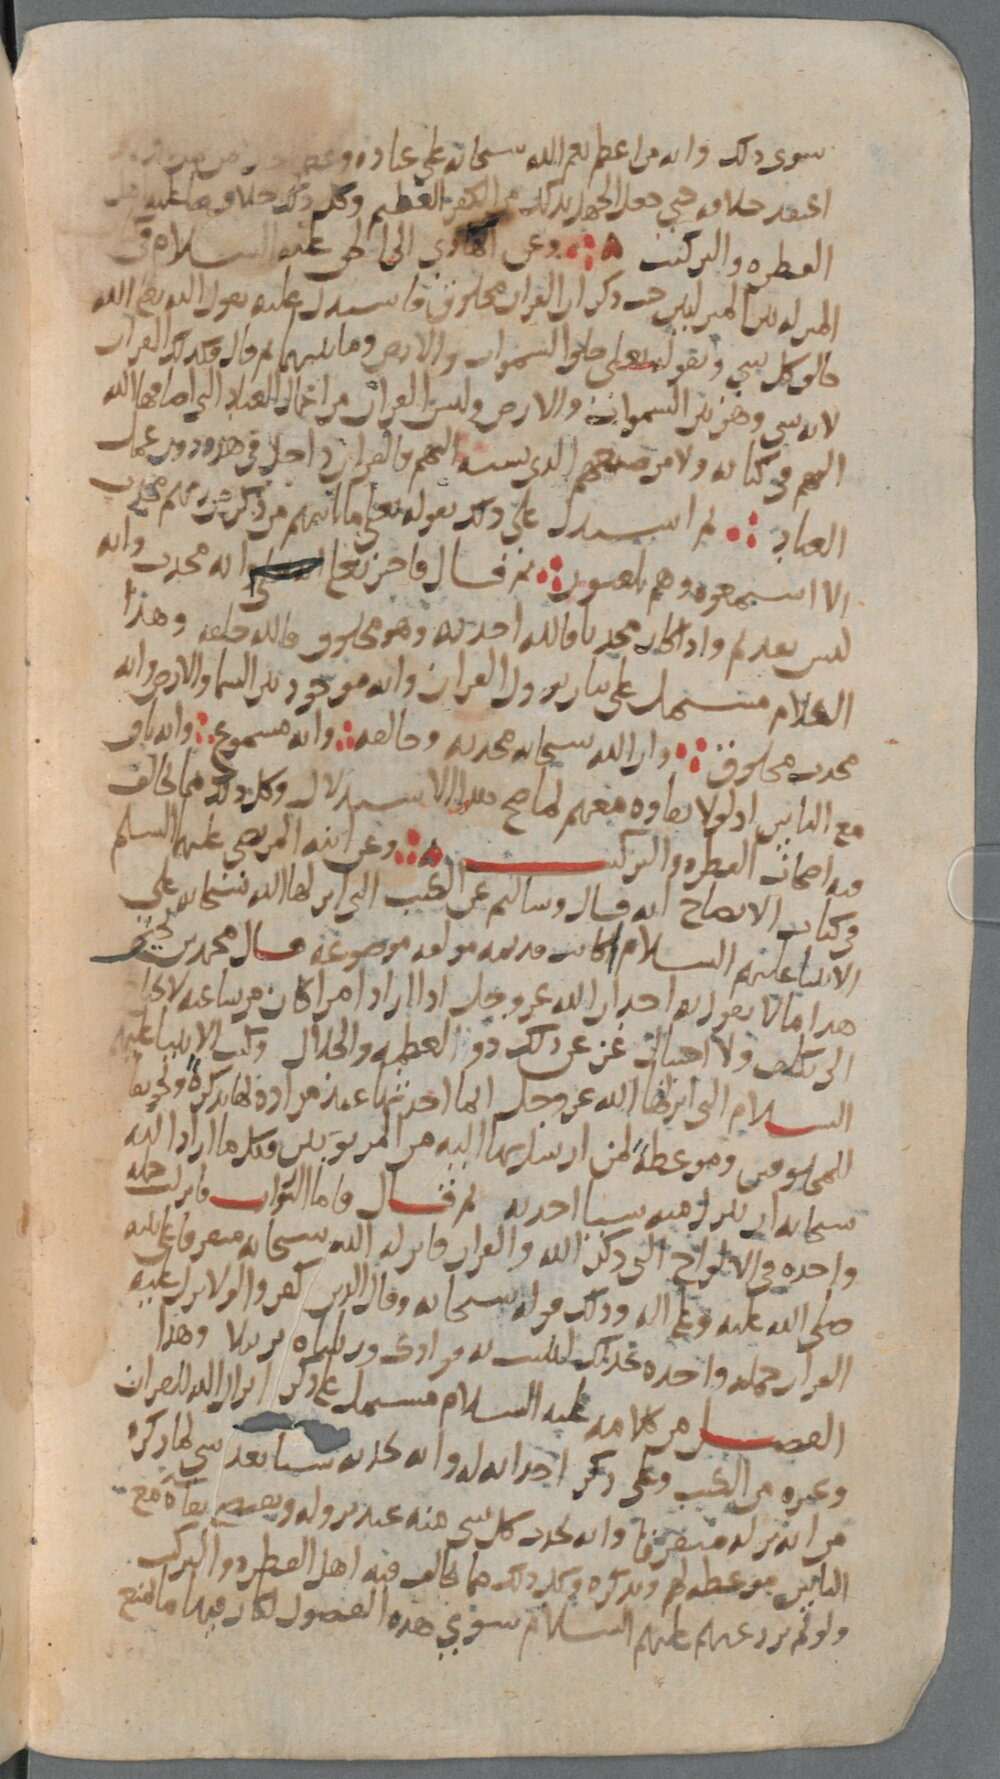 سوى ذلك وانه من اعظم نعم الله سبحانه على عباده
اعتقد خلافه حتى جعل الجهل بذلك من الكفر العظيم وكل ذلك خلاف ما عليه اهل
الفطره والتركيب وعن الهادي الى الحق عليه السلام في
المنزله بين المنزلتين حيث ذكر ان القران مخلوق فاستدل عليه بقول الله نعم الله
خالق كل شي وبقوله تعلى خلق السموات والارض وما بينهما ثم قال فكذلك القران
لانه شي وهو بين السموات والارض وليس القران من اعمال العباد التي اضافها الله
اليهم في كتابه ولا من صنعهم الذي نسبه اليهم فالقران داخل في هذه دون عمل
العباد ثم استدل على ذلك بقوله تعلى ما ياتيهم من ذكر من ربهم محدث
الا استمعوه وهم يلعبون ثم قال فاخبر تعا انه محدث وانه
ليس بقديم واذا كان محدثا فالله احدثه وهو مخلوق فالله خلقه وهذا
الكلام مشتمل على بيان نزول القران وانه موجود بين السما والارض وانه
محدث مخلوق وان الله سبحانه محدثه وخالقه وانه مسموع وانه باق
مع الناس اذ لولا بقاوه معهم لما صح هذا الاستدلال وكل ذلك مما يخالف
فيه اصحاب الفطره والتركيب وعن ابنه المرتضى عليهما السلم
في كتاب الايضاح انه قال وسالتم عن الكتب التي انزلها الله سبحانه على
الانبيا عليهم السلام اكانت قديمه مولفه موضوعه قال محمد بن يحيى
هذا ما لا يقول به احد ان الله عز وجل اذا اراد امرا كان من ساعته لا يحتاج
الى تكلف ولا احتيال غني عن ذلك ذو العظمه والجلال وكتب الانبيا عليهم
السلام التي انزلها الله عز وجل انما احدثها عند مراده لها تذكرة وتخويفا
للمخلوقين وموعظة لمن ارسل بها اليه من المربوبين فكلما اراد الله
سبحانه ان ينزل منه شيا احدثه ثم قال واما التوراه فانزلت جمله
واحده في الالواح التي ذكر الله والقران فانزله الله سبحانه متفرقا على نبيه
صلى الله عليه وعلى اله وذلك قوله سبحانه وقال الذين كفروا لولا نزل عليه
القران جمله واحده كذلك لنثبت به فوادك ورتلناه ترتيلا وهذا
الفصل من كلامه عليه السلام مشتمل على ذكر انزال الله للقران
وغيره من الكتب وعلى ذكر احداثه له وانه يحدثه شيا بعد شي لما ذكره
من انه نزله متفرقا وانه يحدث كل شي منه عند نزوله بقآه مع
الناس موعظه لهم وتذكره وكل ذلك مما يخالف فيه اهل الفطره والتركيب
ولو لم يرد عنهم عليهم السلام سوى هذه الفصول لكان فيها ما يقنع